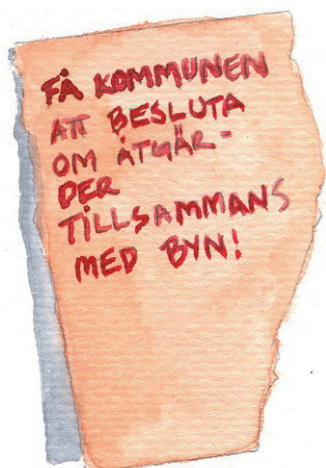 FÅ KOMMUNEN
ATT BESLUTA
OM ÅTGÄR-
DER
TILLSAMMANS
MED BYN!